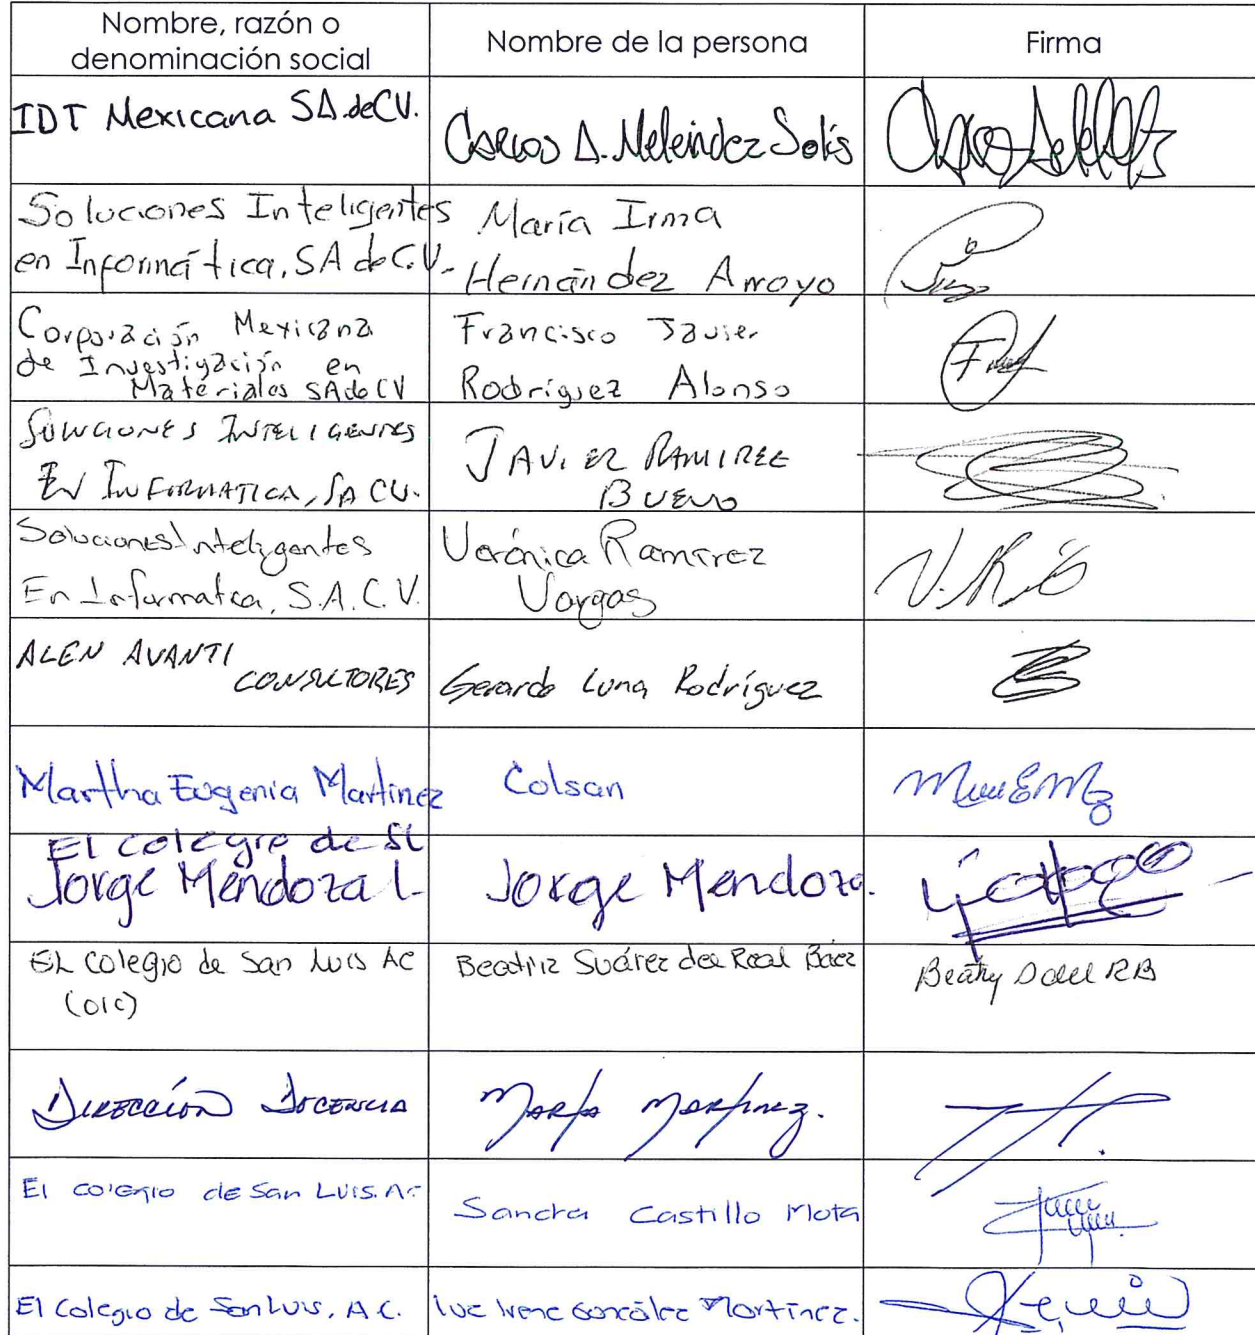 Nombre, razón o
denominación social
Nombre de la persona
Firma
IDT Mexicana SA.deCV.
Carlos A. Meleindez Solís
Soluciones Inteligentes
en Informática, SA de C.V.
María Irma
Hernández Arroyo
Corporación Mexicana
de Investigación en
Materiales SA de CV
Francisco Javier
Rodríguez Alonso
SOLUCIONES INTELIGENTES
EN INFORMATICA, SA CV.
JAVIER RAMIREZ
BUENO
Soluciones Inteligentes
En Informatica, S.A. C.V.
Verónica Ramírez
Vargas
V.R.
ALEN AVANTI
CONSULTORES
Gerardo Luna Rodríguez
Martha Eugenia Martinez
Colsan
El colegio de SL
Jorge Mendoza L.
Jorge Mendoza.
EL Colegio de San Luis AC
(OIC)
Beatriz Suárez del Real Báez
Beatriz S del RB
DIRECCIÓN DOCENCIA
María Martínez.
El colegio de San Luis. AC
Sandra Castillo Mota
El Colegio de San Luis, A.C.
Luz Irene González Martínez.